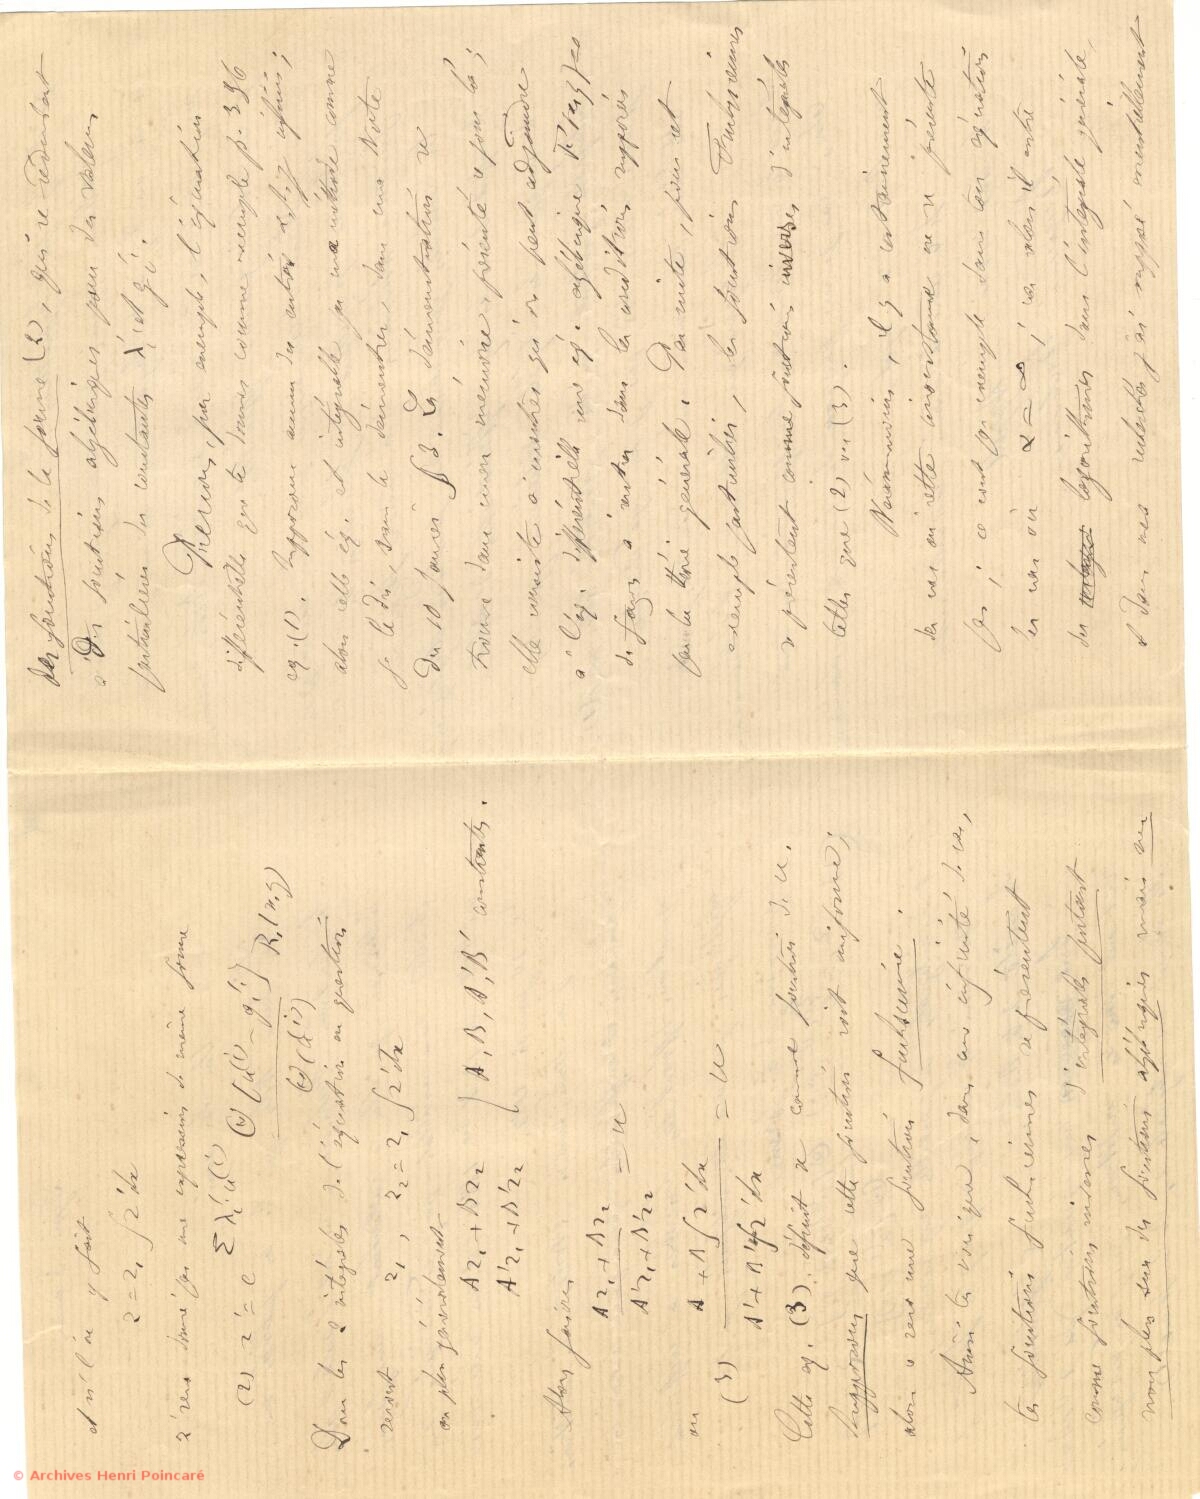 et si l'on y fait
z = z₁ ∫z'dx
z' sera donné par une expression de même forme
(2) z' = e^{Σ λ'ᵢ u^{(i)}} Θ(u^{(i)} – g'ᵢ) / Θ(u^{(i)}) R₁(x,y)
Donc les 2 intégrales de l'équation en question
seront z₁, z₂ = z₁ ∫z'dx
ou plus généralement
Az₁ + Bz₂
A'z₁ + B'z₂ } A, B, A', B' constantes.
Alors faisons
Az₁ + Bz₂ / A'z₁ + B'z₂ = u
ou
(3) A + B∫z'dx / A' + B'∫z'dx = u
Cette eq. (3) définit x comme fonction de u.
Supposons que cette fonction soit uniforme;
alors x sera une fonction fuchsienne.
Ainsi la voici que, dans une infinité de cas,
les fonctions fuchsiennes se présentent
comme fonctions inverses d'intégrales portant
non plus sur des fonctions algébriques mais sur
des fonctions de la forme (2), qui se réduisent
à des fonctions algébriques pour des valeurs
particulières des constantes λ'ᵢ et g'ᵢ.
Prenons, par exemple, l'équation
différentielle que tu donnes comme exemple p. 396
eq. (1). Supposons aucun des entiers α, β, γ infini;
alors cette éq. est intégrable par ma méthode comme
je le dis, sans le démontrer, dans ma Note
du 10 Janvier § 3. La démonstration se
trouve dans mon mémoire, présenté ce jour là;
elle consiste à montrer qu'on peut adjoindre
à l'éq. différentielle une éq. algébrique F(x,y)=0
de façon à rentrer dans les conditions supposées
par la théorie générale. Par suite, pour cet
exemple particulier, les fonctions Fuchsiennes
se présentent comme fonctions inverses d'intégrales
telles que (2) ou (3).
Néanmoins, il y a certainement
des cas où cette circonstance ne se présente
pas; ce sont par exemple dans ton équation
les cas où α = ∞; car alors il entre
des logarithmes dans l'intégrale générale,
et dans mes recherches j'ai supposé essentiellement
© Archives Henri Poincaré